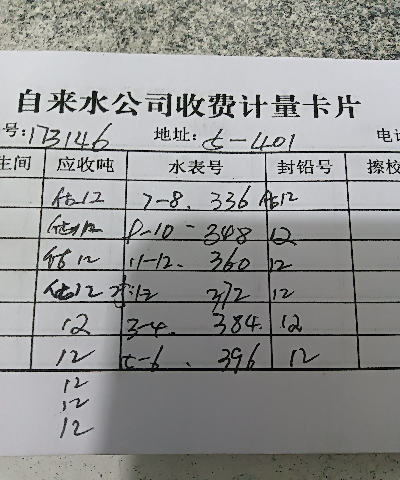 自来水公司收费计量卡片
号:173146 地址: 5-401 电
生间 应收吨 水表号 封铅号 擦校
估12 7-8. 336 估12
估12 9-10 348 12
估12 11-12. 360 12
估12 12 372 12
12 3-4. 384. 12
12 5-6. 396 12
12
12
12